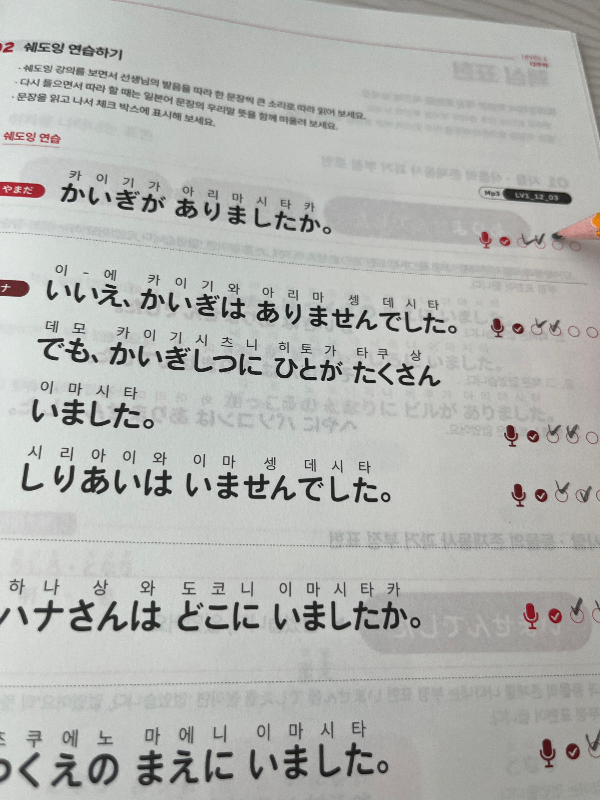 02 쉐도잉 연습하기
· 쉐도잉 강의를 보면서 선생님의 발음을 따라 한 문장씩 큰 소리로 따라 읽어 보세요.
· 다시 들으면서 따라 할 때는 일본어 문장의 우리말 뜻을 함께 떠올려 보세요.
· 문장을 읽고 나서 체크 박스에 표시해 보세요.
쉐도잉 연습
Mp3 LV1_12_03
카 이 기 가 아 리 마 시 타 카
やまだ かいぎが ありましたか。
이 - 에 카 이 기 와 아 리 마 셍 데 시 타
ナ いいえ、かいぎは ありませんでした。
데 모 카 이 기 시 츠 니 히 토 가 타 쿠 상
でも、かいぎしつに ひとが たくさん
이 마 시 타
いました。
시 리 아 이 와 이 마 셍 데 시 타
しりあいは いませんでした。
하 나 상 와 도 코 니 이 마 시 타 카
ハナさんは どこに いましたか。
츠 쿠 에 노 마 에 니 이 마 시 타
つくえの まえに いました。